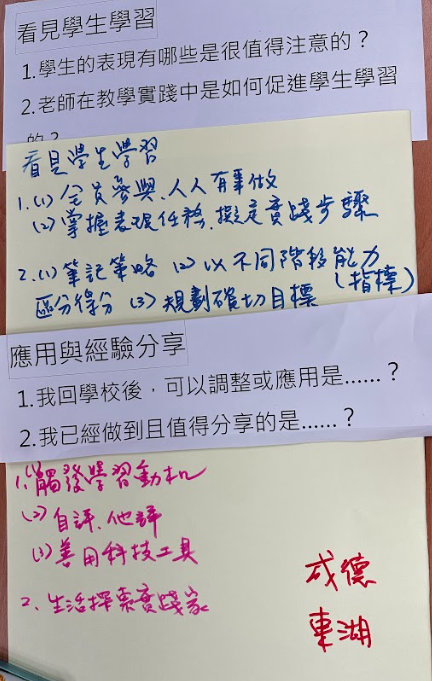 看見學生學習
1.學生的表現有哪些是很值得注意的？
2.老師在教學實踐中是如何促進學生學習
的？
看見學生學習
1.(1)全員參與、人人有事做
(2)掌握表現任務、擬定實踐步驟
2.(1)筆記策略 (2)以不同階移能力
(指標)
區分得分 (3)規劃確切目標
應用與經驗分享
1.我回學校後，可以調整或應用是……？
2.我已經做到且值得分享的是……？
1.(1)觸發學習動机
(2)自評、他評
(3)善用科技工具
2、生活探索實踐家
成德
東湖